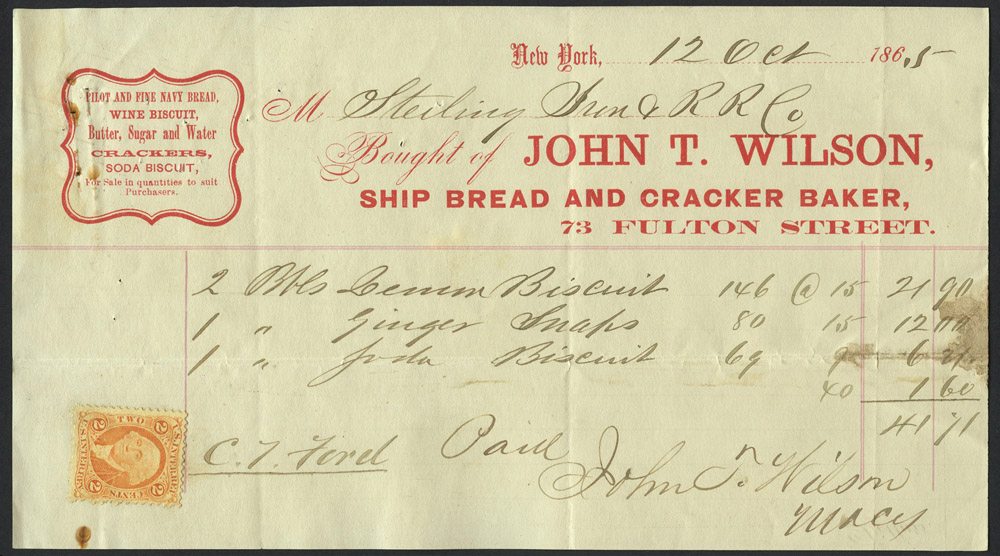 New York, 12 Oct 1865
PILOT AND FINE NAVY BREAD,
WINE BISCUIT,
Butter, Sugar and Water
CRACKERS,
SODA BISCUIT,
For Sale in quantities to suit
Purchasers.
M Sterling Iron & R R Co
Bought of JOHN T. WILSON,
SHIP BREAD AND CRACKER BAKER,
73 FULTON STREET.
2 Bbls Lemon Biscuit 146 @ 15 21 90
1 " Ginger Snaps 80 15 12 00
1 " Soda Biscuit 69 9 6 21
40 1 60
41 71
C. T. Ford Paid
John T. Wilson
Macy
U.S. INTER. REV.
TWO
CENTS
2
2
2
2